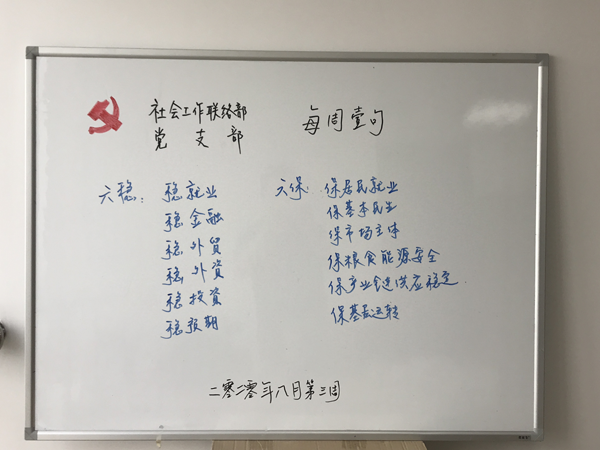 社会工作联络部
党支部
每周壹句
六稳：稳就业
稳金融
稳外贸
稳外资
稳投资
稳预期
六保：保居民就业
保基本民生
保市场主体
保粮食能源安全
保产业链供应稳定
保基层运转
二零二零年八月第三周